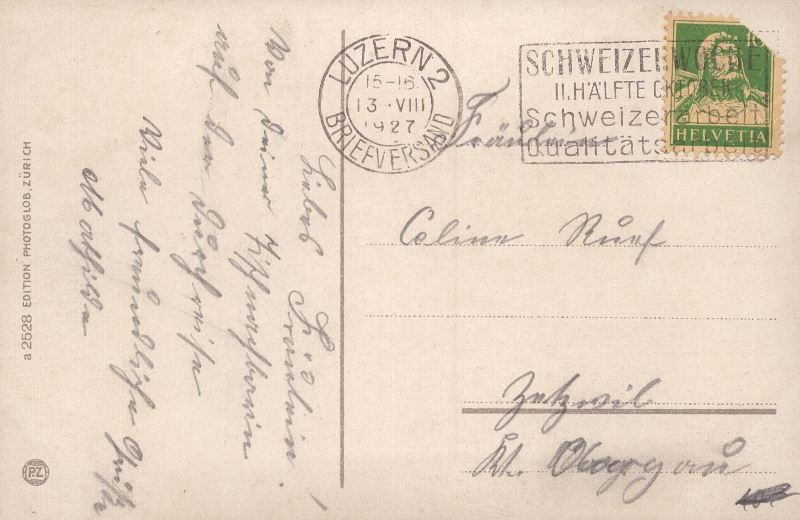 LUZERN 2
15-16
13.VIII
1927
BRIEFVERSAND
SCHWEIZERWOCHE
II. HÄLFTE OKTOBER
Schweizerarbeit
Qualitätsarbeit
10
HELVETIA
Fräulein
Celine Ruef
Zetzwil
Kt. Aargau
Liebes Fräulein!
Von deiner Tischnachbarin
auf der Durchreise
Viele freundliche Grüße
Mathilde
a 2528 EDITION PHOTOGLOB, ZÜRICH
PZ